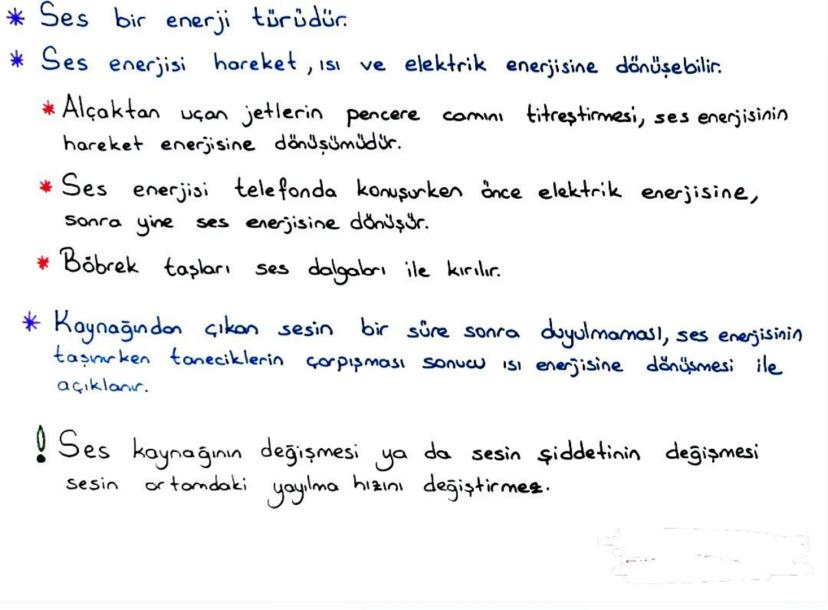 * Ses bir enerji türüdür.
* Ses enerjisi hareket, ısı ve elektrik enerjisine dönüşebilir.
* Alçaktan uçan jetlerin pencere camını titreştirmesi, ses enerjisinin
hareket enerjisine dönüşümüdür.
* Ses enerjisi telefonda konuşurken önce elektrik enerjisine,
sonra yine ses enerjisine dönüşür.
* Böbrek taşları ses dalgaları ile kırılır.
* Kaynağından çıkan sesin bir süre sonra duyulmaması, ses enerjisinin
taşınırken taneciklerin çarpışması sonucu ısı enerjisine dönüşmesi ile
açıklanır.
! Ses kaynağının değişmesi ya da sesin şiddetinin değişmesi
sesin ortamdaki yayılma hızını değiştirmez.